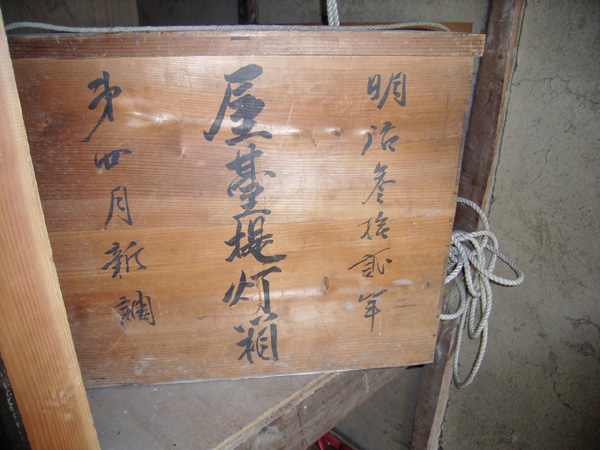 明治参拾貳年
屋臺提灯箱
第四月新調